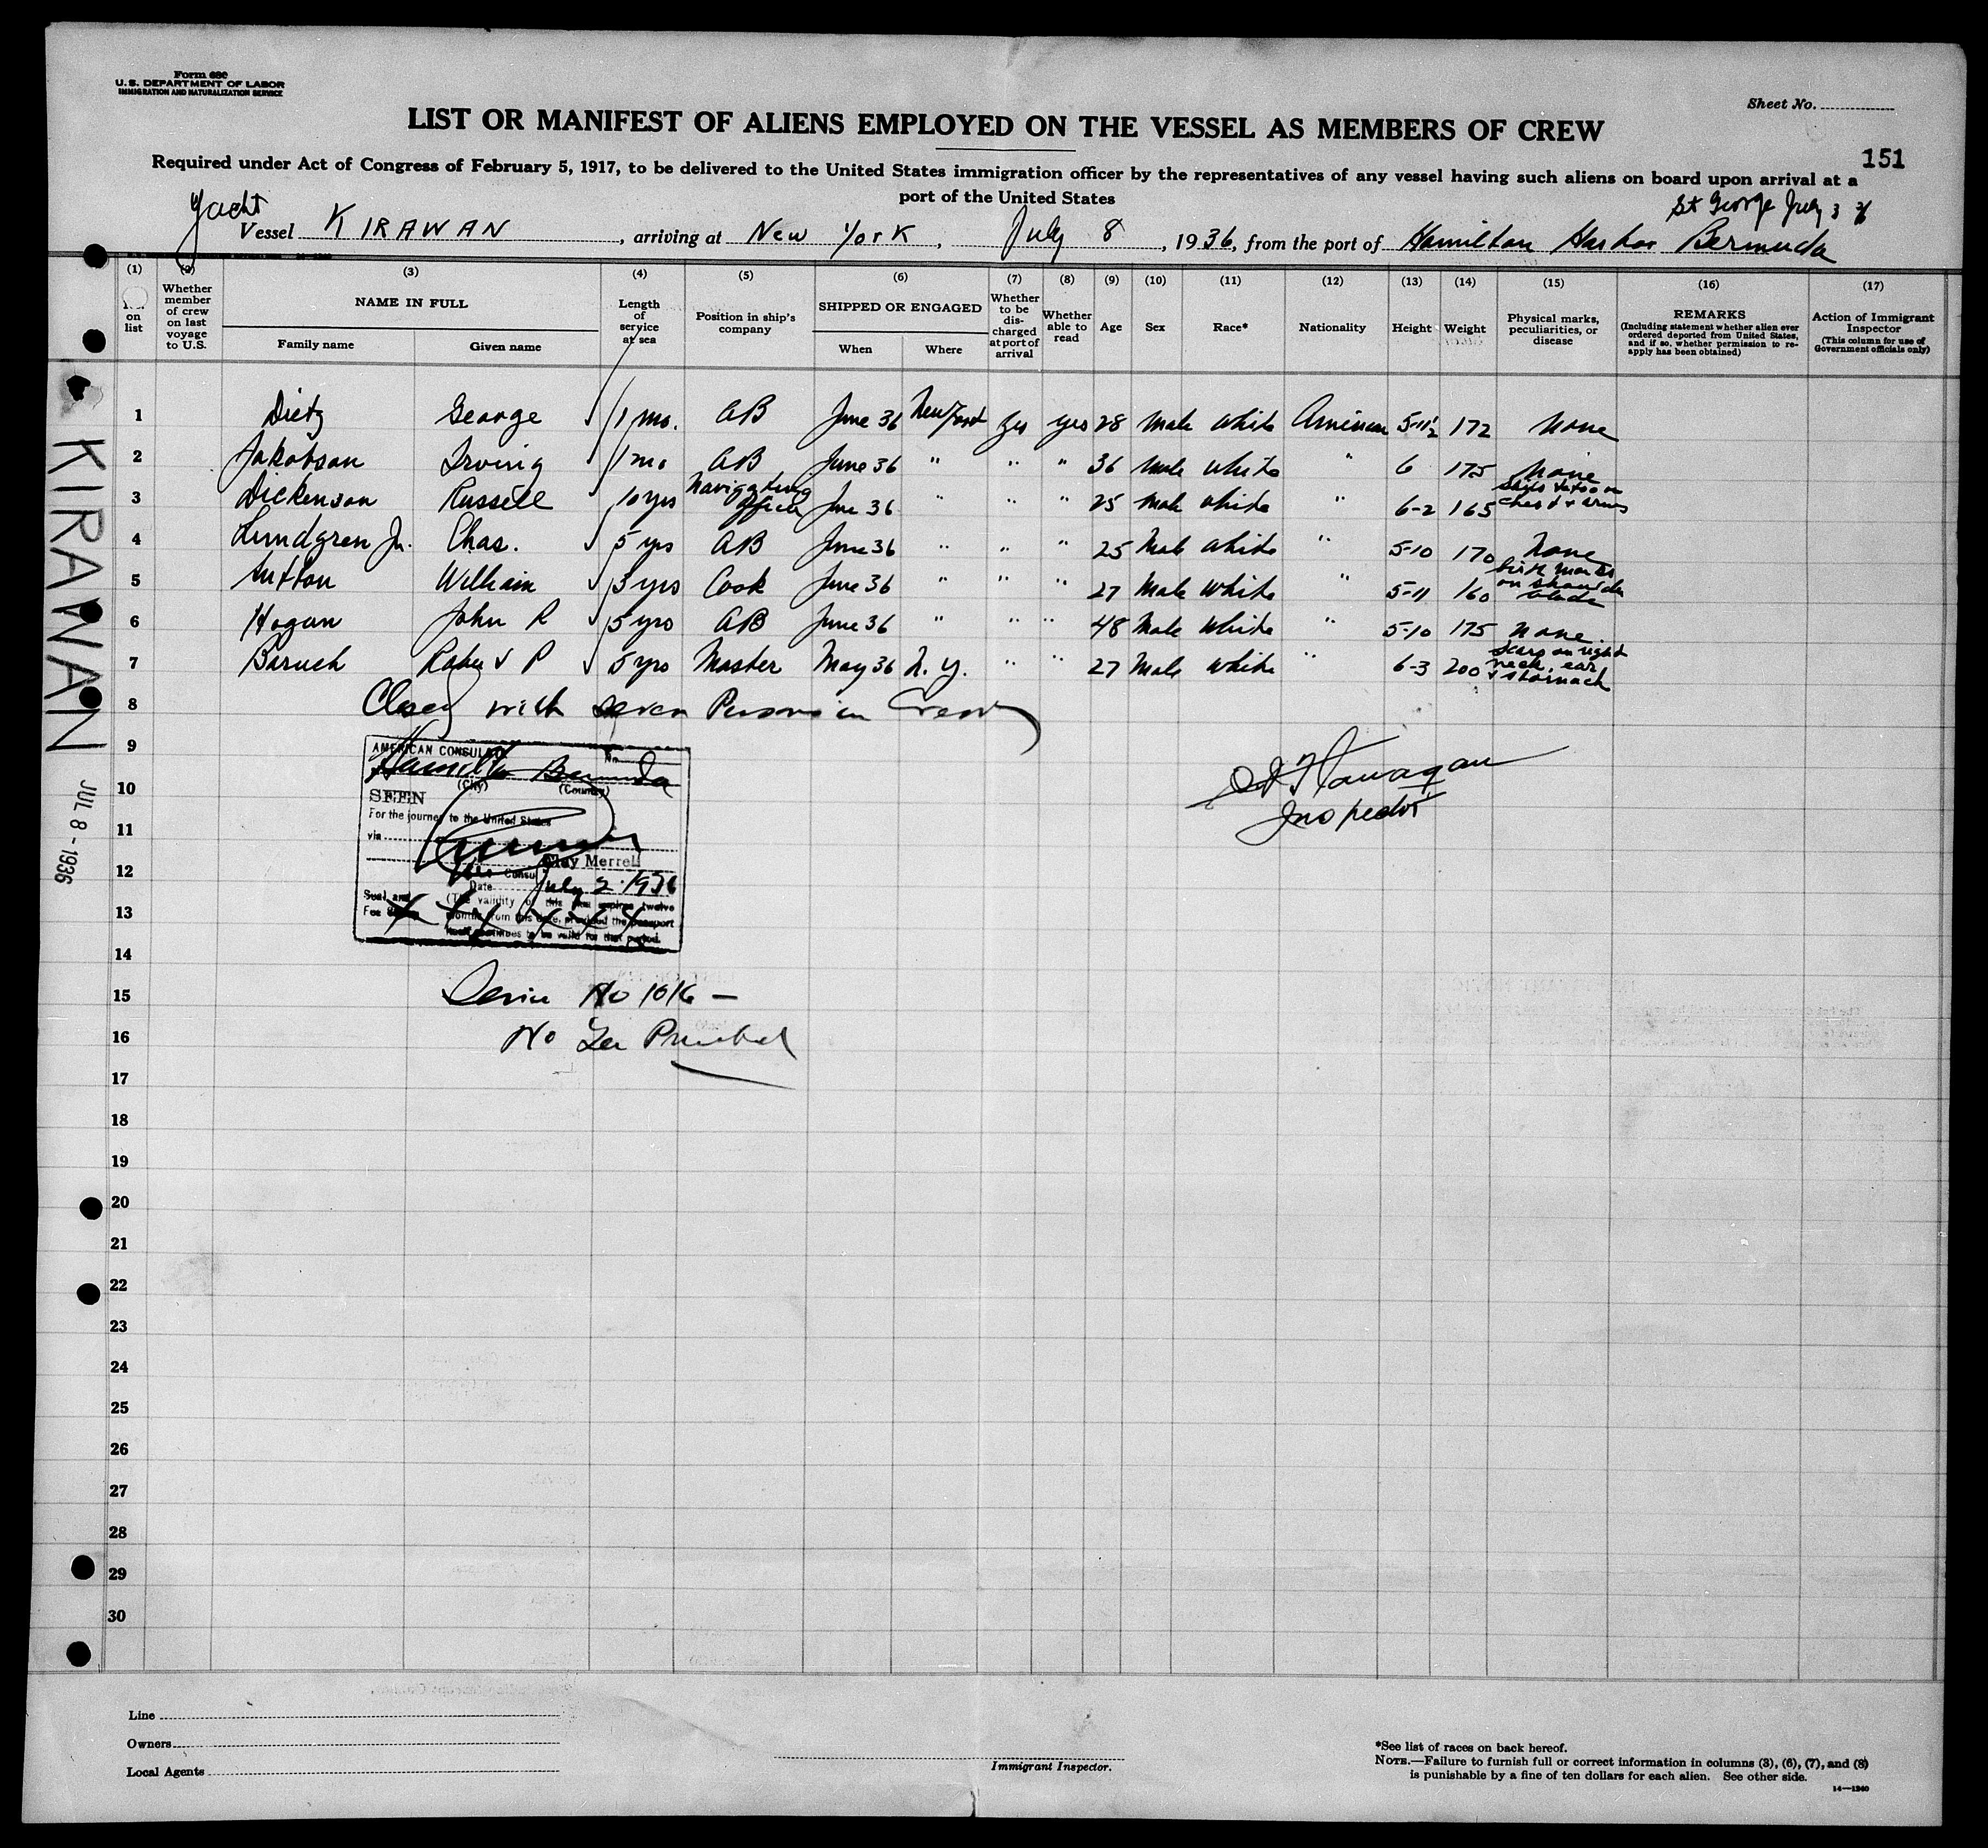 Form 680
U. S. DEPARTMENT OF LABOR
IMMIGRATION AND NATURALIZATION SERVICE
Sheet No.
LIST OR MANIFEST OF ALIENS EMPLOYED ON THE VESSEL AS MEMBERS OF CREW
151
Required under Act of Congress of February 5, 1917, to be delivered to the United States immigration officer by the representatives of any vessel having such aliens on board upon arrival at a
port of the United States
St George July 3 36
Yacht
Vessel KIRAWAN, arriving at New York, July 8, 1936, from the port of Hamilton Harbor Bermuda
(1) (2) (3) (4) (5) (6) (7) (8) (9) (10) (11) (12) (13) (14) (15) (16) (17)
No. on list
Whether member of crew on last voyage to U.S.
NAME IN FULL
Family name
Given name
Length of service at sea
Position in ship's company
SHIPPED OR ENGAGED
When
Where
Whether to be discharged at port of arrival
Whether able to read
Age
Sex
Race*
Nationality
Height
Weight
Physical marks, peculiarities, or disease
REMARKS
(Including statement whether alien ever ordered deported from United States, and if so, whether permission to reapply has been obtained)
Action of Immigrant Inspector
(This column for use of Government officials only)
1 Dietz George √ 1 mo. AB June 36 Newport yes yes 28 male white American 5-11½ 172 none
2 Jakobson Irving 1 mo AB June 36 " " " 36 male white " 6 175 none
3 Dickenson Russell 10 yrs Navigating Officer June 36 " " " 25 male white " 6-2 165 ships tatoo on chest & arms
4 Lundgren Jr. Chas. √ 5 yrs AB June 36 " " " 25 Male white " 5-10 170 none
5 Sutton William √ 3 yrs Cook June 36 " " " 27 Male white " 5-11 160 birth marks on shoulder blade
6 Hogan John R √ 5 yrs AB June 36 " " " 48 Male white " 5-10 175 none.
7 Baruch Robert P √ 5 yrs Master May 36 N. Y. " " 27 Male white " 6-3 200 scars on right neck, ear & stomach
8 Closed with seven Persons in Crew
9
10
11
12
13
14
15
16
17
18
19
20
21
22
23
24
25
26
27
28
29
30
AMERICAN CONSULATE
No.
Hamilton Bermuda
(City) (Country)
SEEN
For the journey to the United States
via
Clay Merrell
Vice Consul
Date July 2 · 1936
Seal and
Fee
(The validity of this visa expires twelve
months from this date, provided the passport
itself continues to be valid for that period.
Flanagan
Inspector
Service No 1016 —
No Fee Prescribed
KIRAWAN
JUL 8 - 1936
Line
Owners
Local Agents
Immigrant Inspector.
*See list of races on back hereof.
NOTE.—Failure to furnish full or correct information in columns (3), (6), (7), and (8)
is punishable by a fine of ten dollars for each alien. See other side.
14—1240